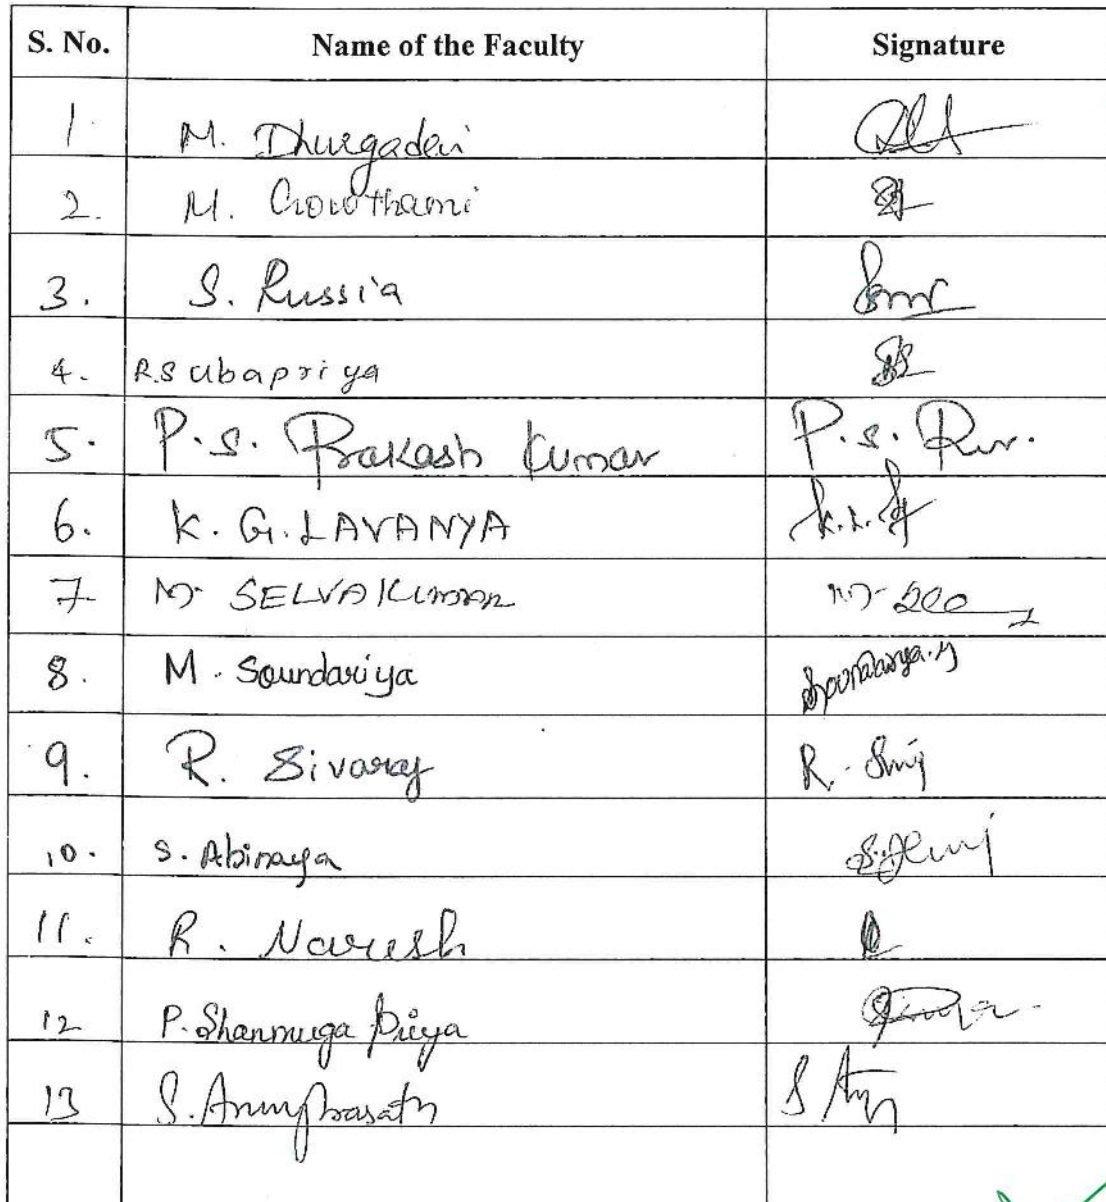 S. No. Name of the Faculty Signature
1. M. Dhurgadevi
2. M. Gowthami
3. S. Russia
4. R.Subapriya
5. P.S. Prakash Kumar P.S.
6. K.G.LAVANYA
7 M. SELVAKUMAR
8. M. Soundariya Soundarya.M
9. R. Sivaraj R.
10. S. Abinaya
11. R. Naresh
12 P. Shanmuga Priya
13 S. Arunprasath S